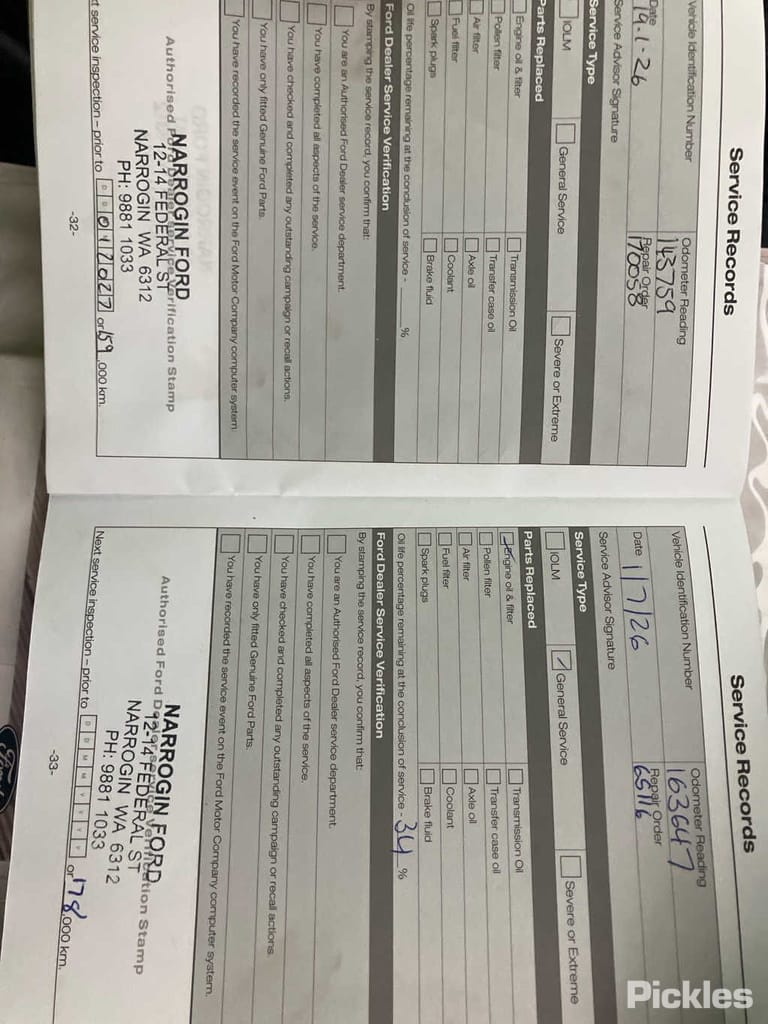 Service Records
Vehicle Identification Number
Odometer Reading
143759
Date
19-1-26
Repair Order
170058
Service Advisor Signature
Service Type
IOLM
General Service
Severe or Extreme
Parts Replaced
Engine oil & filter
Transmission Oil
Pollen filter
Transfer case oil
Air filter
Axle oil
Fuel filter
Coolant
Spark plugs
Brake fluid
Oil life percentage remaining at the conclusion of service - %
Ford Dealer Service Verification
By stamping the service record, you confirm that:
You are an Authorised Ford Dealer service department.
You have completed all aspects of the service.
You have checked and completed any outstanding campaign or recall actions.
You have only fitted Genuine Ford Parts.
You have recorded the service event on the Ford Motor Company computer system.
Authorised Ford Dealer Service Verification Stamp
NARROGIN FORD
12-14 FEDERAL ST
NARROGIN WA 6312
PH: 9881 1033
t service inspection – prior to D D 012027 or 159,000 km.
-32-
Service Records
Vehicle Identification Number
Odometer Reading
163647
Date
1/7/26
Repair Order
65116
Service Advisor Signature
Service Type
IOLM
General Service
Severe or Extreme
Parts Replaced
Engine oil & filter
Transmission Oil
Pollen filter
Transfer case oil
Air filter
Axle oil
Fuel filter
Coolant
Spark plugs
Brake fluid
Oil life percentage remaining at the conclusion of service - 34 %
Ford Dealer Service Verification
By stamping the service record, you confirm that:
You are an Authorised Ford Dealer service department.
You have completed all aspects of the service.
You have checked and completed any outstanding campaign or recall actions.
You have only fitted Genuine Ford Parts.
You have recorded the service event on the Ford Motor Company computer system.
Authorised Ford Dealer Service Verification Stamp
NARROGIN FORD
12-14 FEDERAL ST
NARROGIN WA 6312
PH: 9881 1033
Next service inspection – prior to D D M M Y Y Y Y or 178,000 km.
-33-
Ford
Pickles